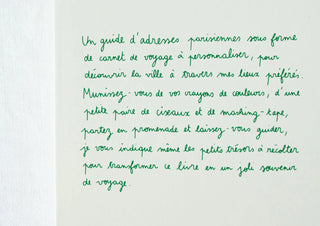 Un guide d'adresses parisiennes sous forme
de carnet de voyage à personnaliser, pour
découvrir la ville à travers mes lieux préférés.
Munissez-vous de vos crayons de couleurs, d'une
petite paire de ciseaux et de masking-tape,
partez en promenade et laissez-vous guider,
je vous indique même les petits trésors à récolter
pour transformer ce livre en un joli souvenir
de voyage.